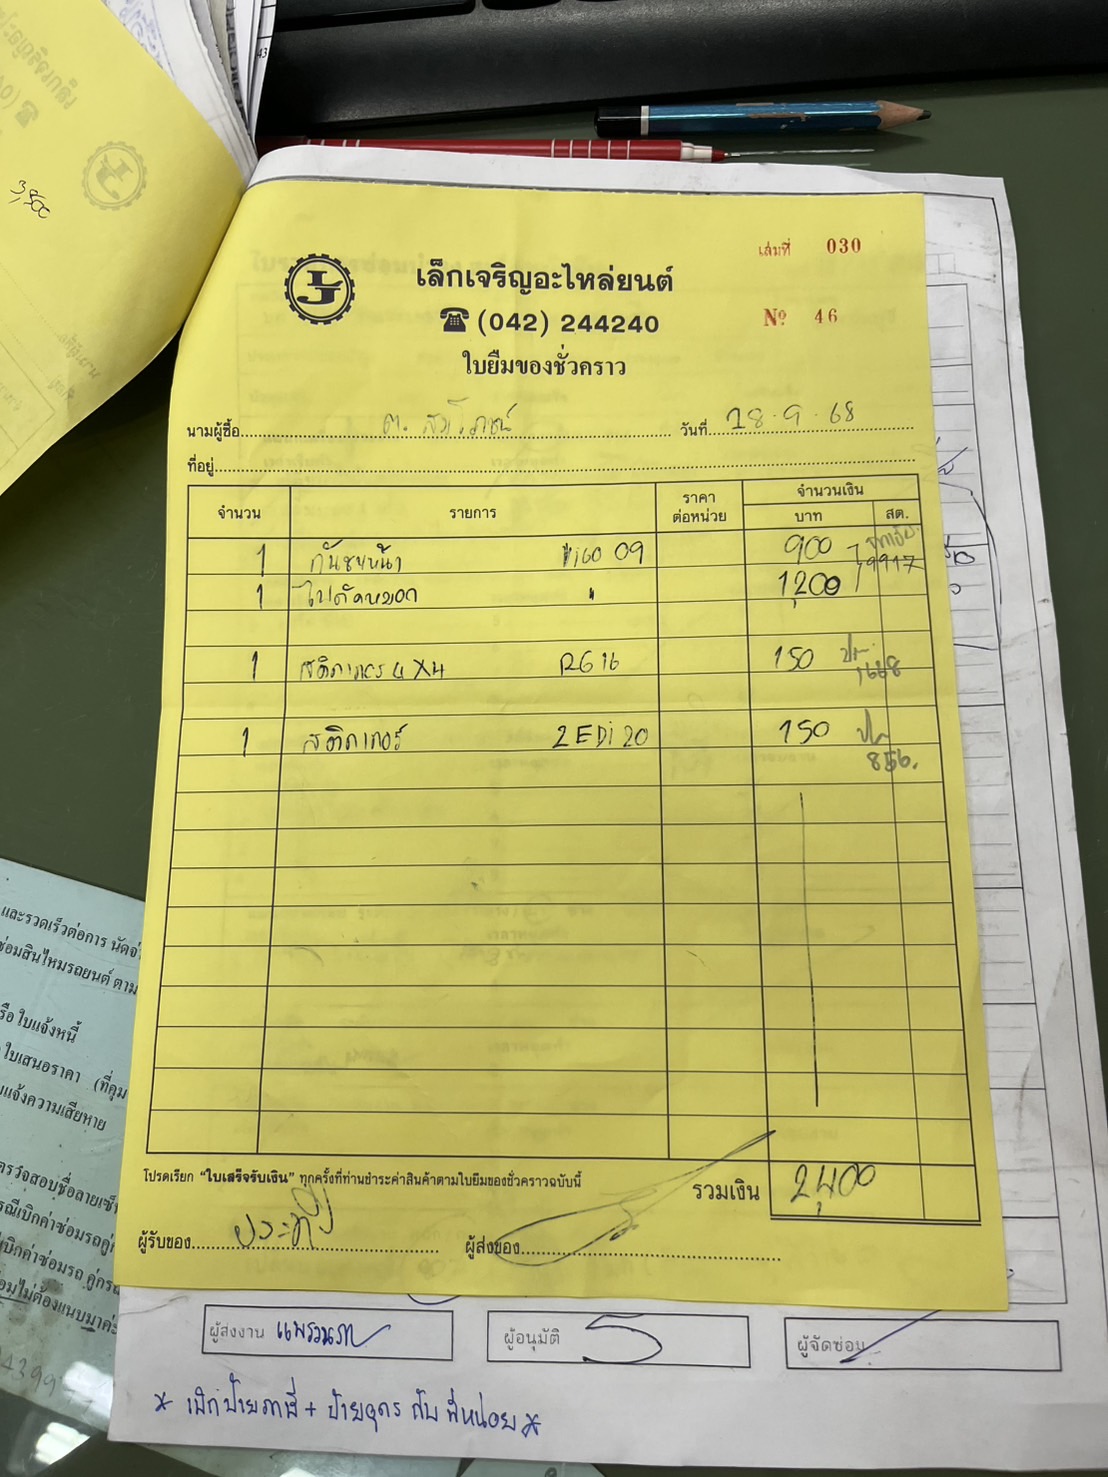 3,500
เล่มที่ 030
LJ
เล็กเจริญอะไหล่ยนต์
(042) 244240
Nº 46
ใบยืมของชั่วคราว
นามผู้ซื้อ วันที่ 28.9.68
ที่อยู่
จำนวน รายการ ราคาต่อหน่วย จำนวนเงิน
บาท สต.
1 กันชนหน้า Vigo 09 900 9917
1 ไฟตัดหมอก " 1,200
1 สติกเกอร์ 4X4 RG 16 150 1668
1 สติกเกอร์ 2EDi 20 150 856.
โปรดเรียก "ใบเสร็จรับเงิน" ทุกครั้งที่ท่านชำระค่าสินค้าตามใบยืมของชั่วคราวฉบับนี้
รวมเงิน 2,400
ผู้รับของ ผู้ส่งของ
และรวดเร็วต่อการ นัดจ่
ซ่อมสินไหมรถยนต์ ตาม
รือ ใบแจ้งหนี้
ใบเสนอราคา (ที่คุม
แจ้งความเสียหาย
ตรวจสอบชื่อลายเซ็
รณีเบิกค่าซ่อมรถคู่
เบิกค่าซ่อมรถ คู่กร
อมไม่ต้องแนบมาค่ะ
ผู้ส่งงาน แพรวนภา ผู้อนุมัติ ผู้จัดซ่อม
* เบิกป้ายภาษี + ป้ายอุดร กับ พี่หน่อย *